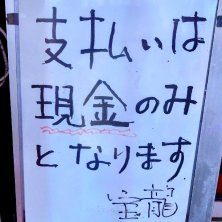 支払いは
現金のみ
となります
宝龍